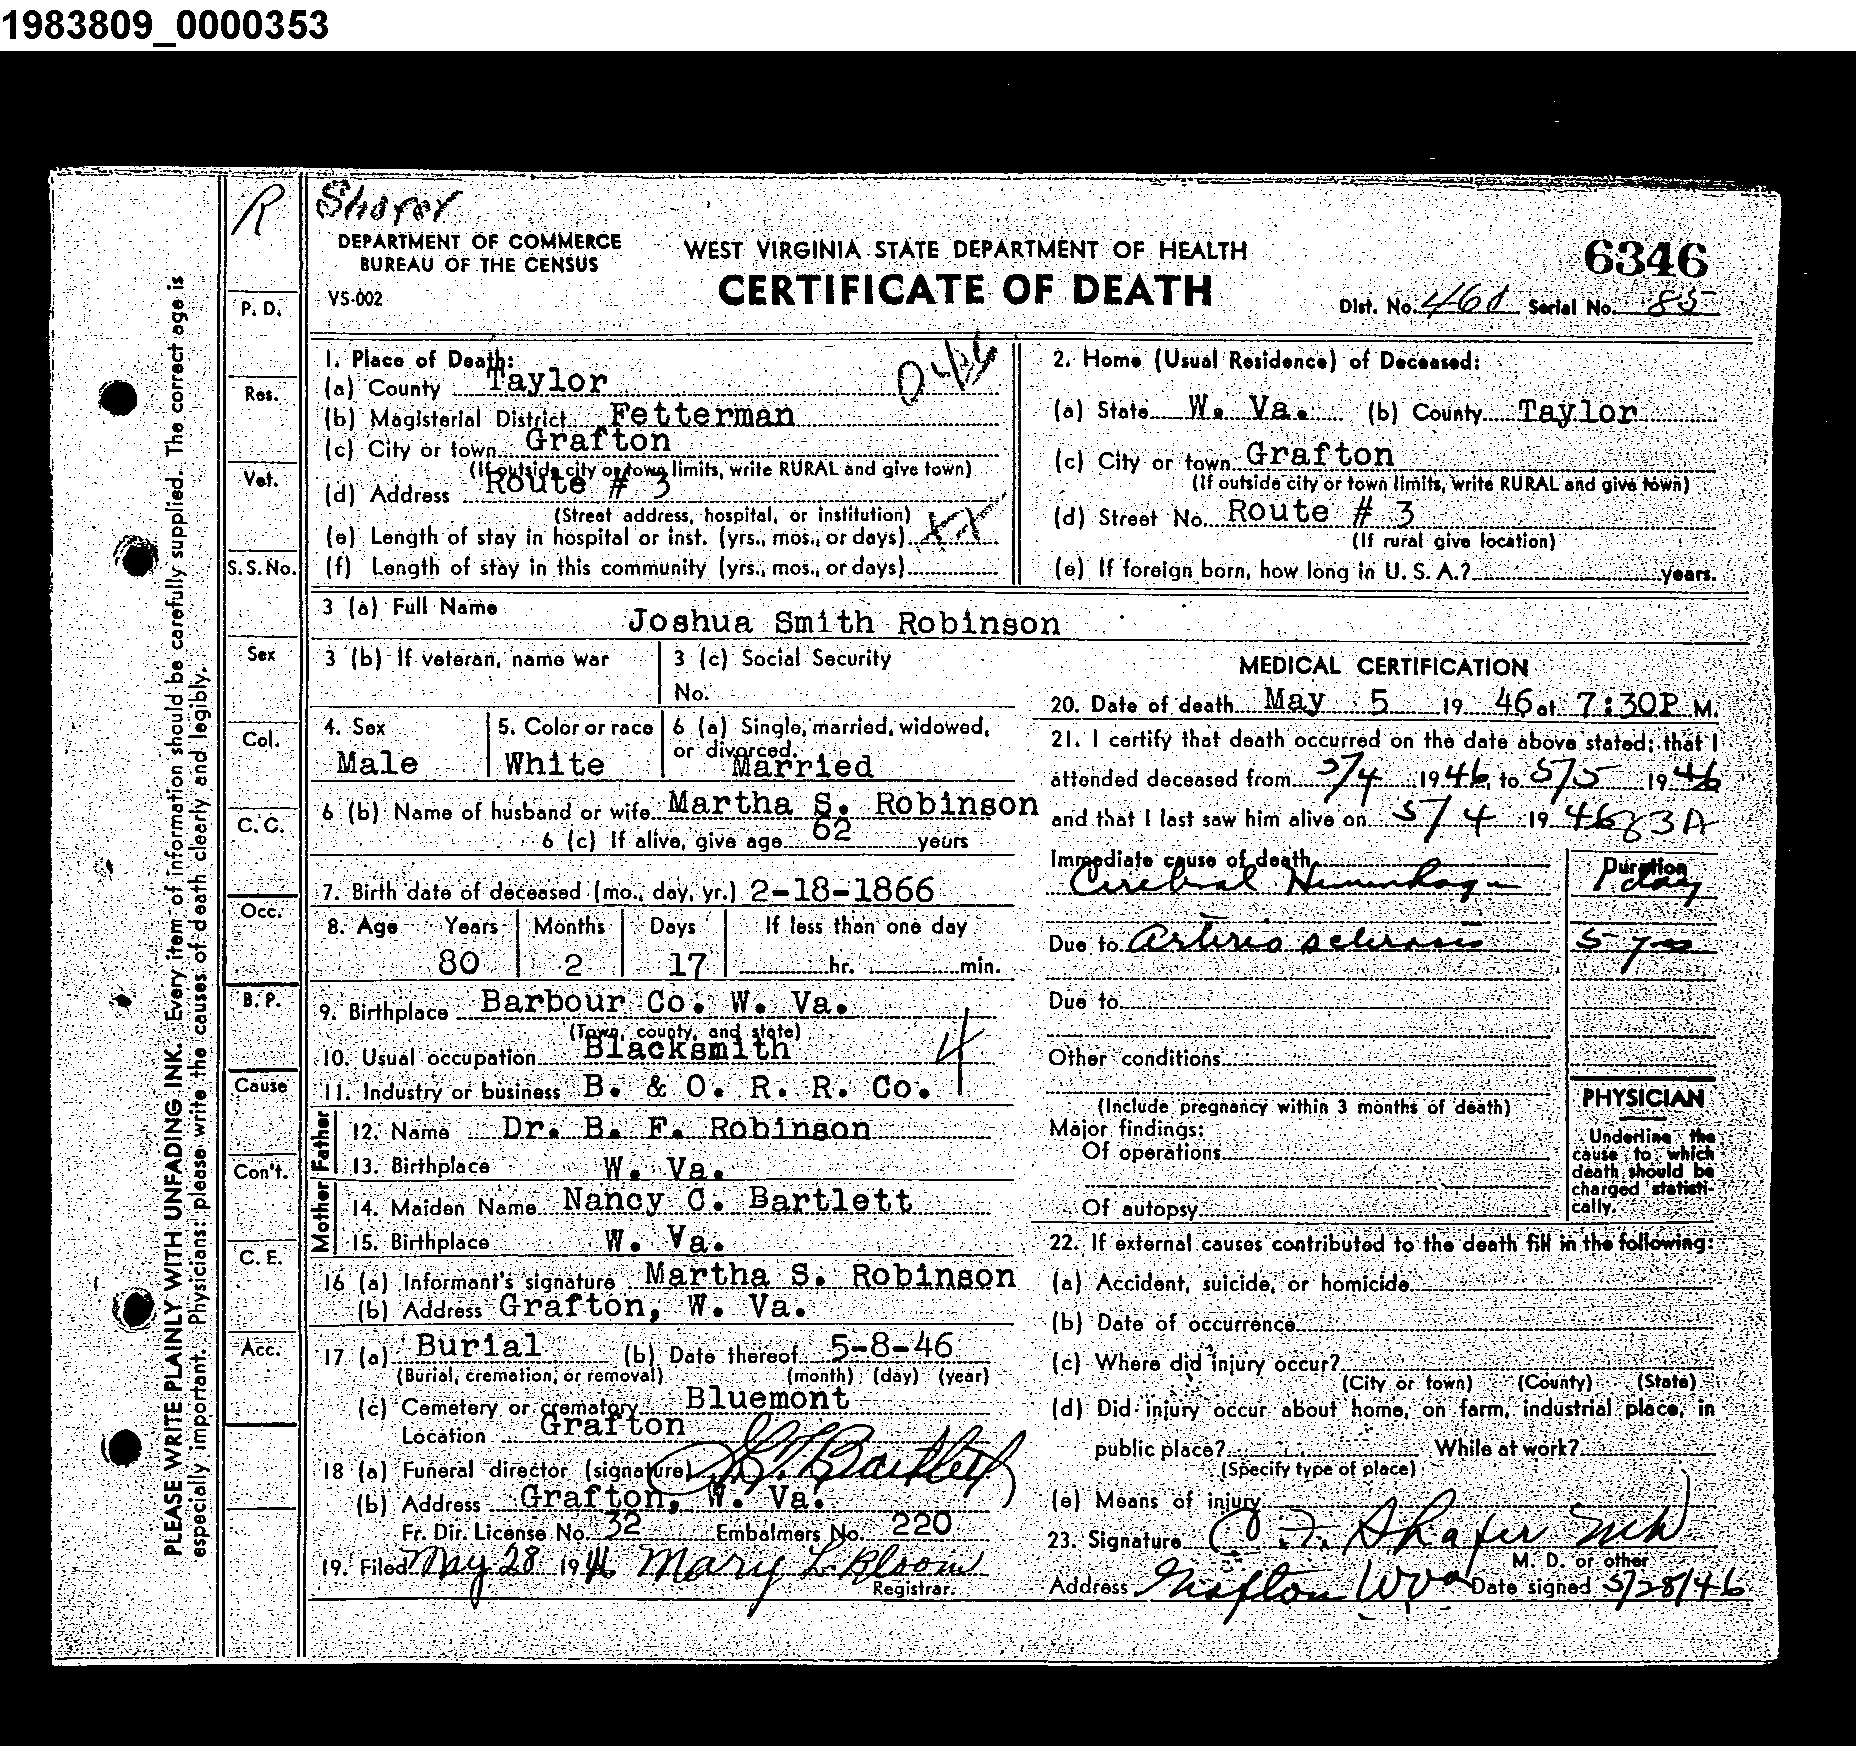 1983809_0000353
R
Shafer
DEPARTMENT OF COMMERCE
BUREAU OF THE CENSUS
VS-002
WEST VIRGINIA STATE DEPARTMENT OF HEALTH
CERTIFICATE OF DEATH
6346
Dist. No. 460 Serial No. 85
PLEASE WRITE PLAINLY WITH UNFADING INK. Every item of information should be carefully supplied. The correct age is
especially important. Physicians: please write the causes of death clearly and legibly.
P. D.
Res.
Vet.
S. S. No.
Sex
Col.
C. C.
Occ.
B. P.
Cause
Con't.
C. E.
Acc.
1. Place of Death:
(a) County Taylor
(b) Magisterial District Fetterman
(c) City or town Grafton
(If outside city or town limits, write RURAL and give town)
(d) Address Route # 3
(Street address, hospital, or institution)
(e) Length of stay in hospital or inst. (yrs., mos., or days) XX
(f) Length of stay in this community (yrs., mos., or days)
2. Home (Usual Residence) of Deceased:
(a) State W. Va. (b) County Taylor
(c) City or town Grafton
(If outside city or town limits, write RURAL and give town)
(d) Street No. Route # 3
(If rural give location)
(e) If foreign born, how long in U. S. A.? years.
3 (a) Full Name Joshua Smith Robinson
3 (b) If veteran, name war
3 (c) Social Security
No.
4. Sex
Male
5. Color or race
White
6 (a) Single, married, widowed,
or divorced.
Married
6 (b) Name of husband or wife Martha S. Robinson
6 (c) If alive, give age 62 years
7. Birth date of deceased (mo., day, yr.) 2-18-1866
8. Age Years Months Days If less than one day
80 2 17 hr. min.
9. Birthplace Barbour Co. W. Va.
(Town, county, and state)
10. Usual occupation Blacksmith
4
11. Industry or business B. & O. R. R. Co.
Father
12. Name Dr. B. F. Robinson
13. Birthplace W. Va.
Mother
14. Maiden Name Nancy C. Bartlett
15. Birthplace W. Va.
16 (a) Informant's signature Martha S. Robinson
(b) Address Grafton, W. Va.
17 (a) Burial (b) Date thereof 5-8-46
(Burial, cremation, or removal) (month) (day) (year)
(c) Cemetery or crematory Bluemont
Location Grafton
18 (a) Funeral director (signature) Bartlett
(b) Address Grafton, W. Va.
Fr. Dir. License No. 32 Embalmers No. 220
19. Filed May 28 1946 Mary L. Bloom
Registrar.
MEDICAL CERTIFICATION
20. Date of death May 5 19 46 at 7:30P M.
21. I certify that death occurred on the date above stated; that I
attended deceased from 5/4 1946, to 5/5 1946
and that I last saw him alive on 5/4 1946
Immediate cause of death
Cerebral Hemorrhage
Duration
1 day
Due to Arterio sclerosis 5 yrs
Due to
Other conditions
(Include pregnancy within 3 months of death)
Major findings:
Of operations
Of autopsy
PHYSICIAN
Underline the
cause to which
death should be
charged statisti-
cally.
22. If external causes contributed to the death fill in the following:
(a) Accident, suicide, or homicide
(b) Date of occurrence
(c) Where did injury occur?
(City or town) (County) (State)
(d) Did injury occur about home, on farm, industrial place, in
public place? While at work?
(Specify type of place)
(e) Means of injury
23. Signature C. F. Shafer MD
M. D. or other
Address Grafton W Va Date signed 5/28/46